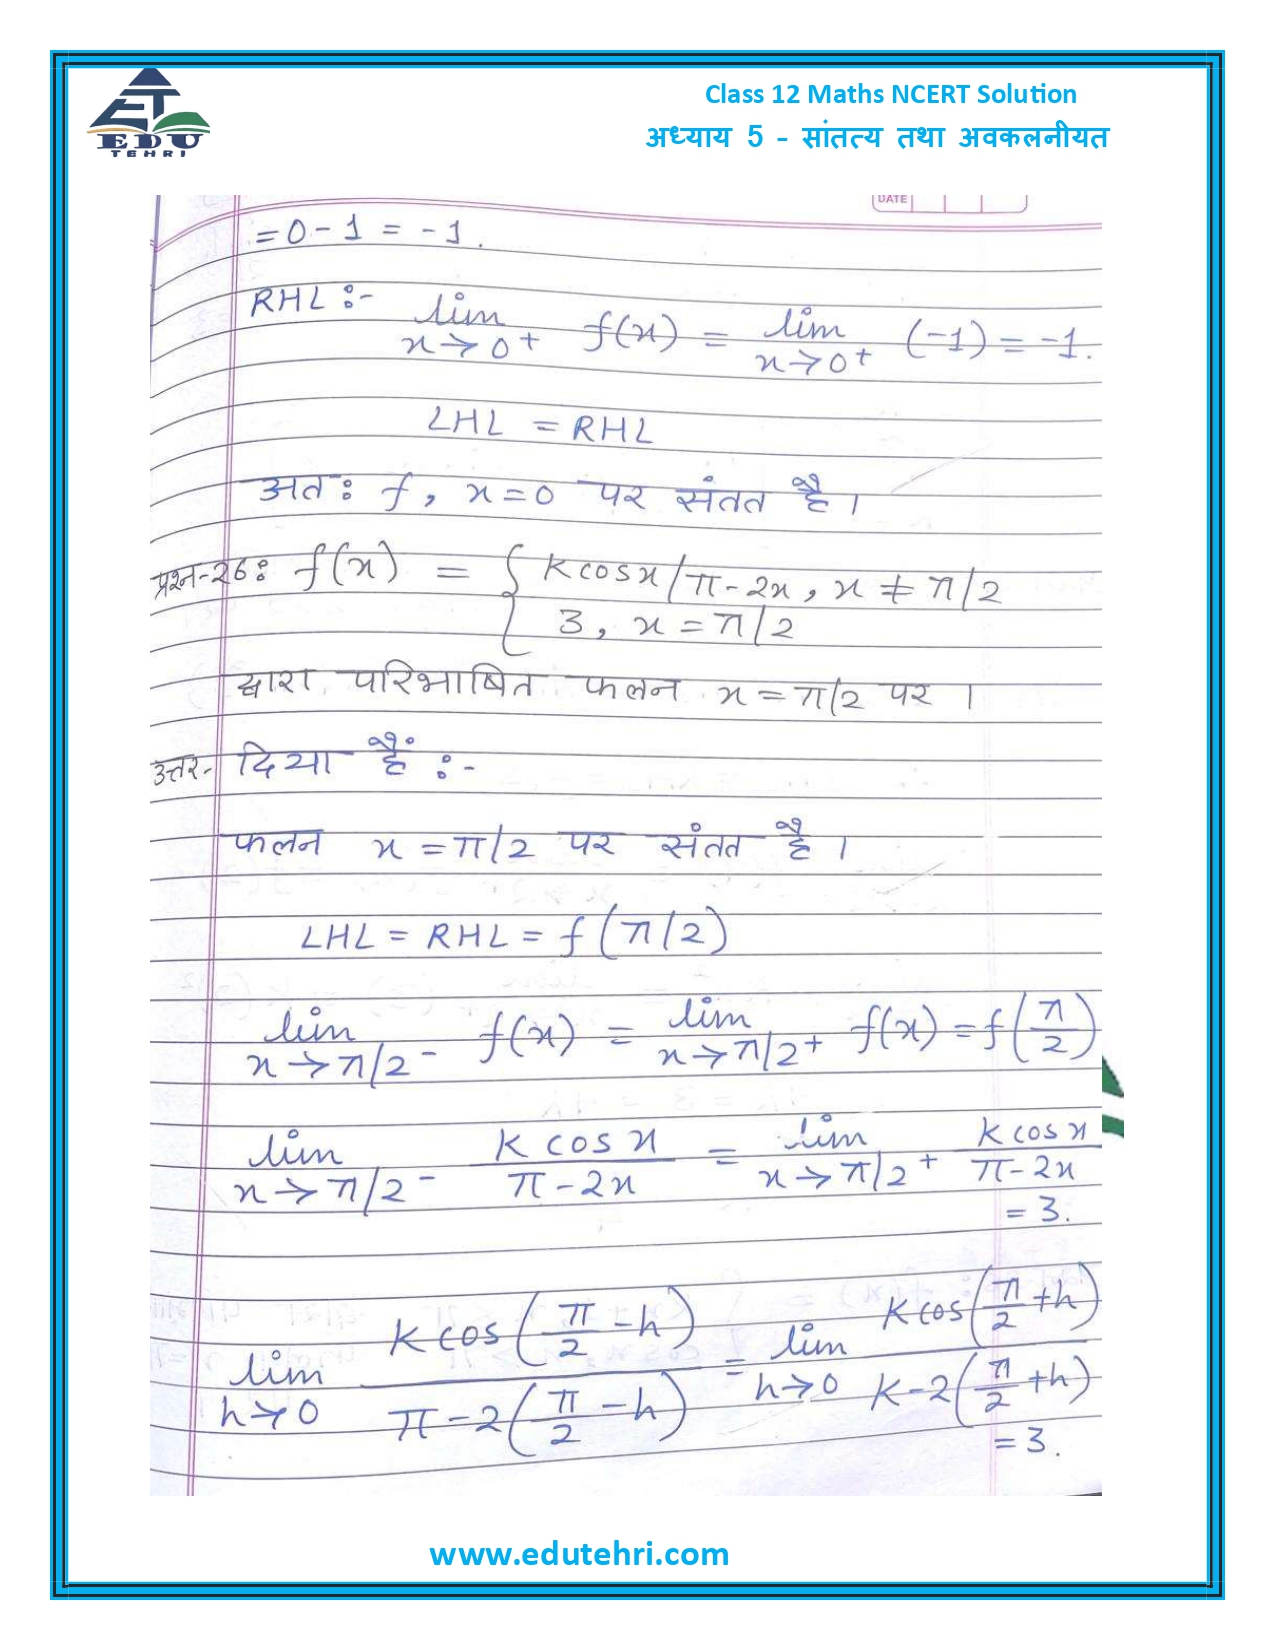 EDU
TEHRI
Class 12 Maths NCERT Solution
अध्याय 5 - सांतत्य तथा अवकलनीयत
DATE
= 0 - 1 = -1.
RHL :- lim x→0⁺ f(x) = lim x→0⁺ (-1) = -1.
LHL = RHL
अतः f, x=0 पर संतत है।
प्रश्न-26: f(x) = { K cosx/π-2x, x ≠ π/2
3, x = π/2
द्वारा परिभाषित फलन x = π/2 पर।
उत्तर- दिया हैं :-
फलन x = π/2 पर संतत है।
LHL = RHL = f(π/2)
lim x→π/2⁻ f(x) = lim x→π/2⁺ f(x) = f(π/2)
lim x→π/2⁻ K cosx/π-2x = lim x→π/2⁺ K cosx/π-2x
= 3.
lim h→0 K cos(π/2 - h)/π-2(π/2 - h) = lim h→0 K cos(π/2 + h)/K-2(π/2 + h)
= 3.
www.edutehri.com